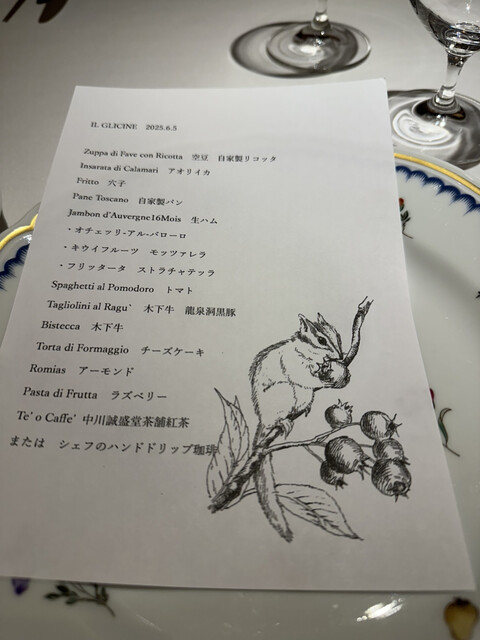 IL GLICINE 2025.6.5
Zuppa di Fave con Ricotta 空豆 自家製リコッタ
Insarata di Calamari アオリイカ
Fritto 穴子
Pane Toscano 自家製パン
Jambon d'Auvergne16Mois 生ハム
・オチェッリ-アル-バローロ
・キウイフルーツ モッツァレラ
・フリッタータ ストラチャテッラ
Spaghetti al Pomodoro トマト
Tagliolini al Ragu` 木下牛 龍泉洞黒豚
Bistecca 木下牛
Torta di Formaggio チーズケーキ
Romias アーモンド
Pasta di Frutta ラズベリー
Te' o Caffe' 中川誠盛堂茶舗紅茶
または シェフのハンドドリップ珈琲